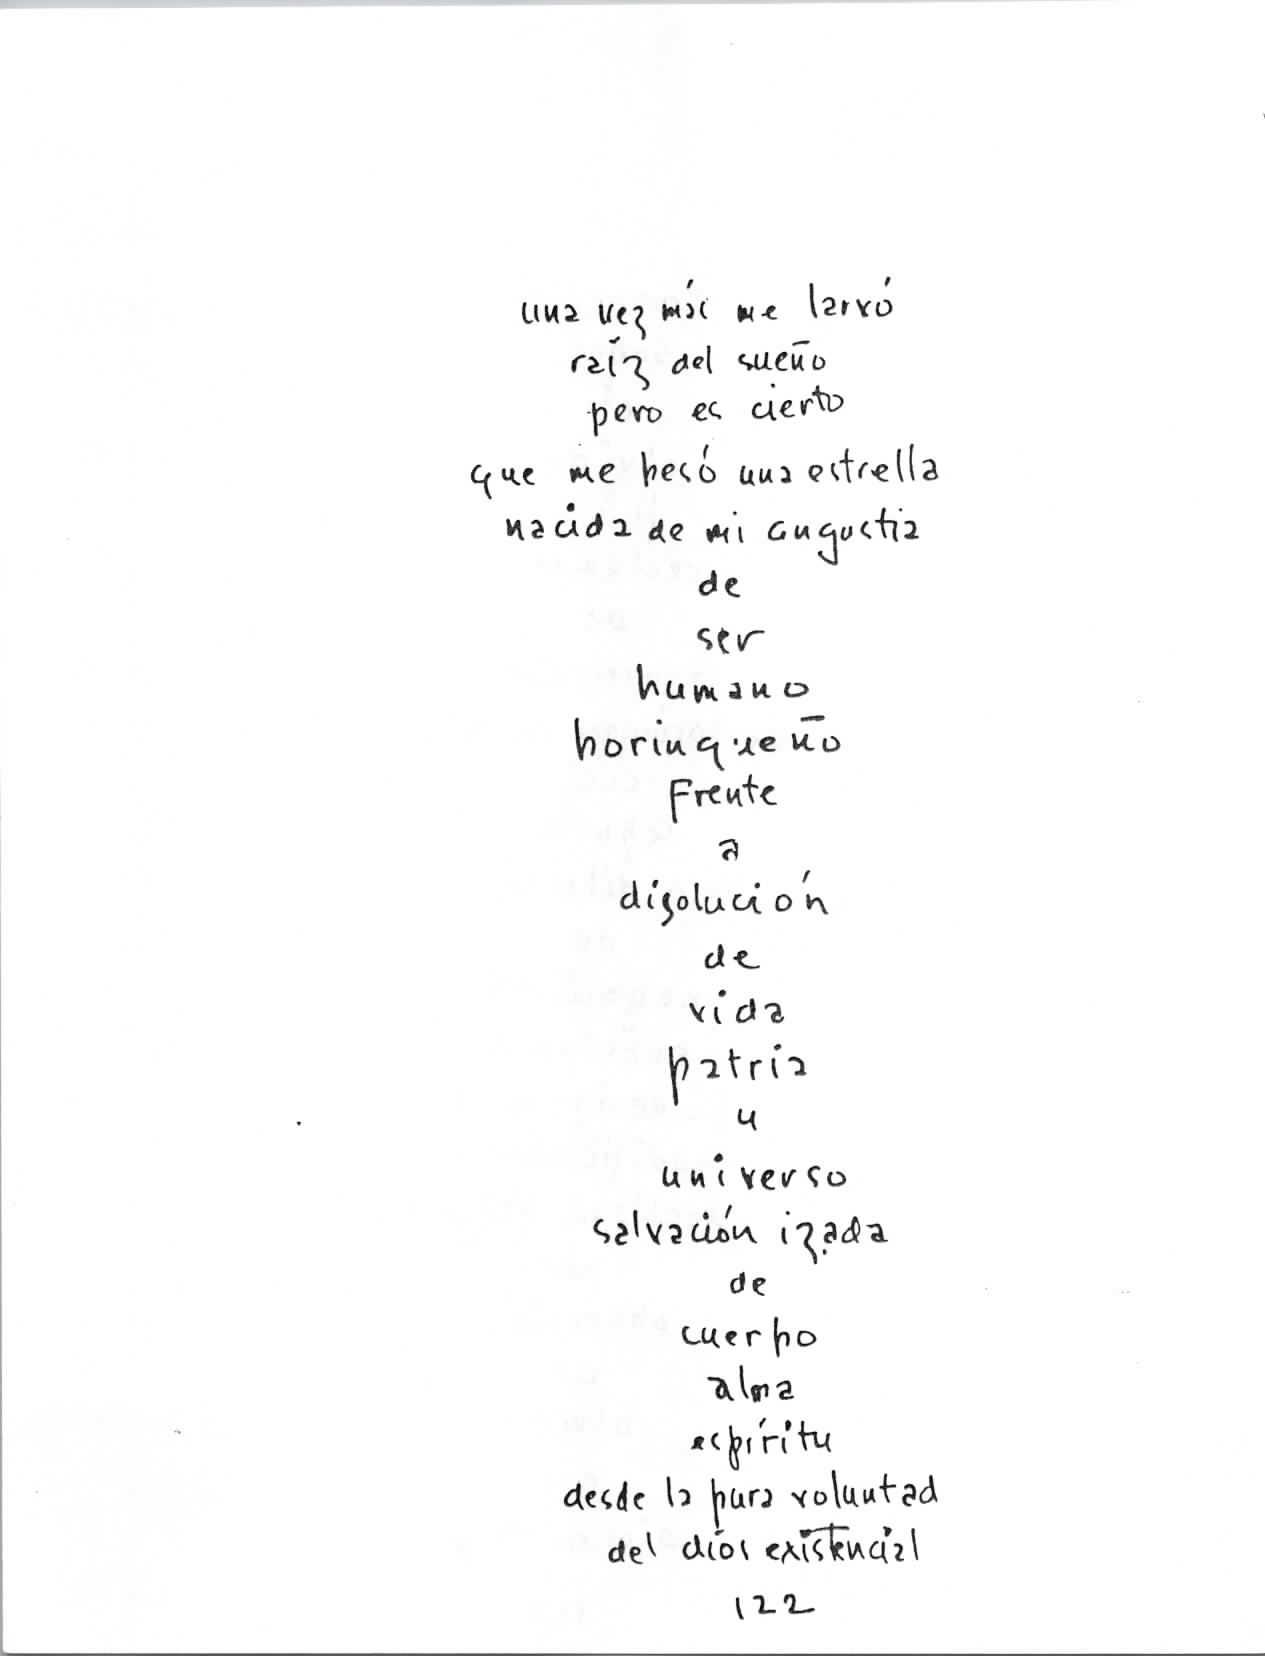 una vez más me larvó
raíz del sueño
pero es cierto
que me besó una estrella
nacida de mi angustia
de
ser
humano
borinqueño
frente
a
disolución
de
vida
patria
y
universo
salvación izada
de
cuerpo
alma
espíritu
desde la pura voluntad
del dios existencial
122